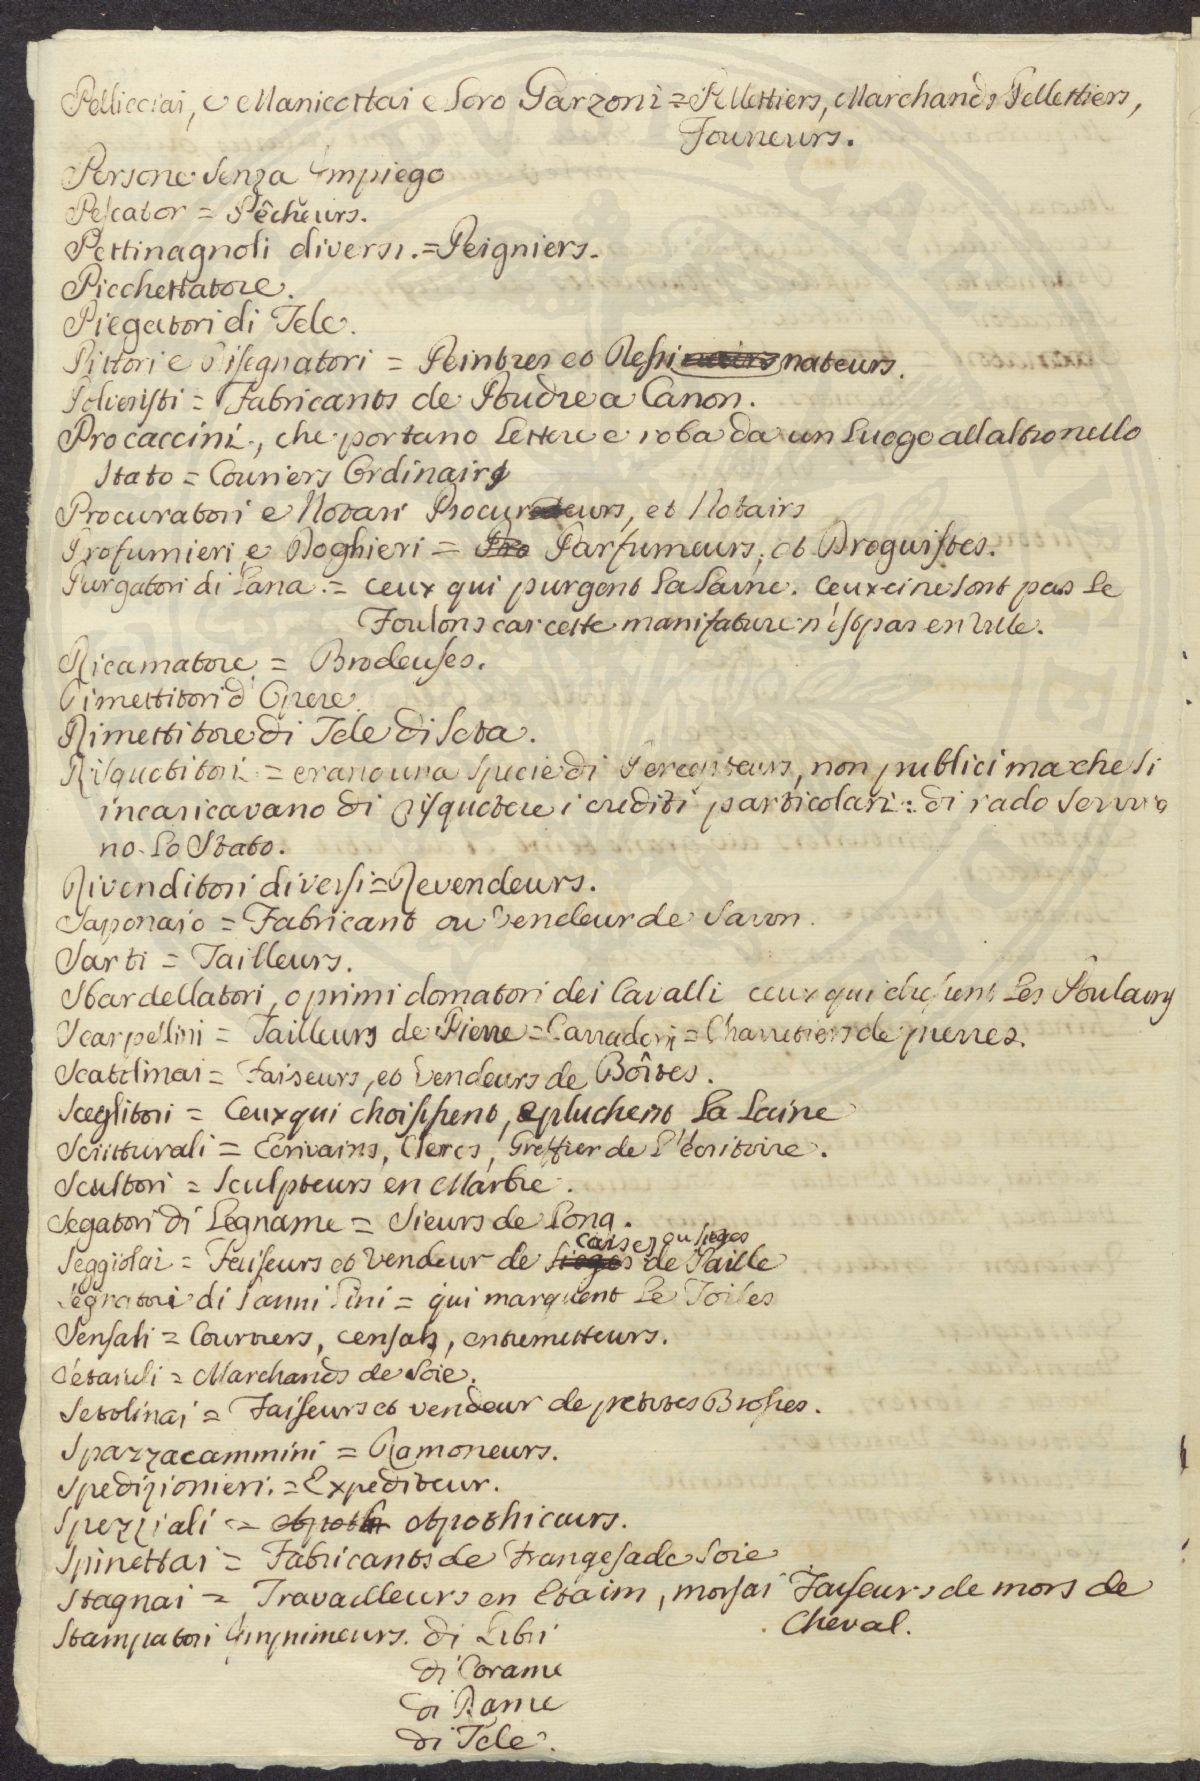 Pellicciai, e Manicottai e loro Garzoni = Pellettiers, Marchands Pellettiers,
Foureurs.
Persone senza Impiego
Pescator = Pêcheurs.
Pettinagnoli diversi. = Peigniers.
Picchettatore.
Piegatori di Tele.
Pittori e Disegnatori = Peintres et Dessinateurs.
Polveristi = Fabricants de Poudre a Canon.
Procaccini, che portano Lettere e roba da un Luogo all altro nello
Stato = Couriers Ordinairs
Procuratori e Notari Procureurs, et Notairs
Profumieri, e Droghieri = Parfumeurs, et Droguistes.
Purgatori di Lana. = ceux qui purgent La Laine. Ceux ci ne sont pas Le
Foulons car cette manifature n'est pas en Ville.
Ricamatore = Brodeuses.
Rimettitori d'Opere.
Rimettitore di Tele di Seta.
Risquotitori = erano una specie di Percepteurs, non publici ma che si
incaricavano di risquotere i crediti particolari: di rado serviva
no Lo Stato.
Rivenditori diversi = Revendeurs.
Saponaio = Fabricant ou Vendeur de Savon.
Sarti = Tailleurs.
Sbardellatori, o primi domatori dei Cavalli ceux qui dressent Les Poulains
Scarpellini = Tailleurs de Pierre = Carradori = Charretiers de pierres.
Scatolinai = Faiseurs, et Vendeurs de Boîtes.
Sceglitori = Ceux qui choisissent, epluchent La Laine
Scritturali = Ecrivains, Clercs, Greffier de L'écritoire.
Scultori = Sculpteurs en Marbre.
Segatori di Legname = Sieurs de Long.
caises ou sieges
Seggiolai = Faiseurs et Vendeur de sieges de Paille
Segnatori di Panni Lini = qui marquent Le Toiles
Sensali = Courtiers, censals, entremetteurs.
Setaiuli = Marchands de Soie.
Setolinai = Faiseurs et vendeur de petites Brosses.
Spazzacammini = Ramoneurs.
Spedizionieri. = Expediteur.
Speziali = Apoth Apothicaurs.
Spinettai = Fabricants de Frangesade Soie
Stagnai = Travailleurs en Etaim, morsai Faiseurs de mors de
Cheval.
Stampatori Imprimeurs. di Libri
di Corame
di Rame
di Tele.